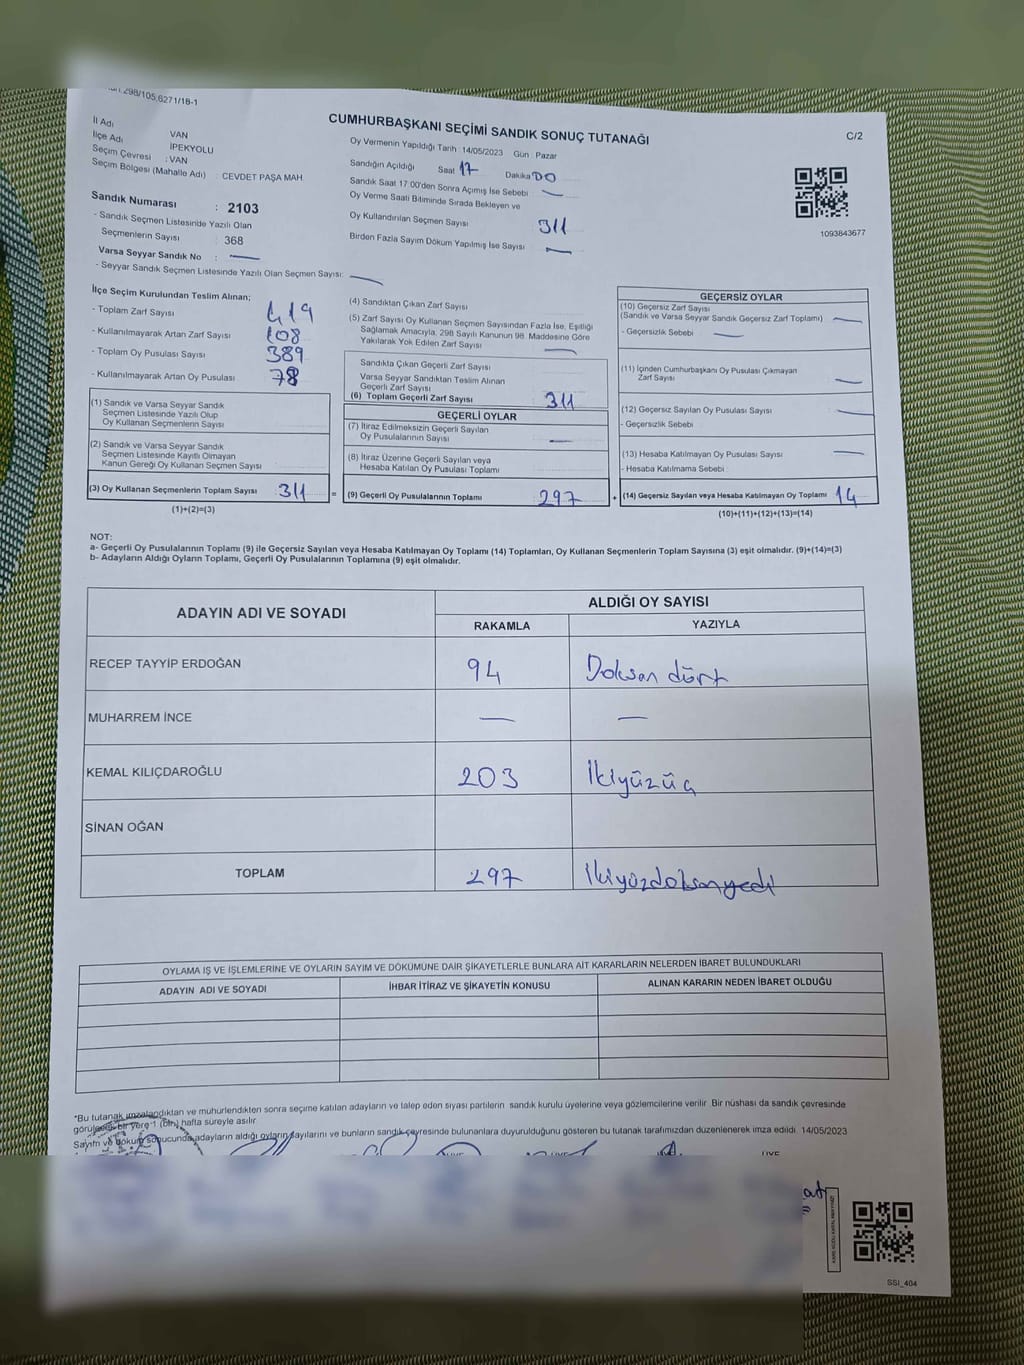 298/105,6271/18-1
CUMHURBAŞKANI SEÇİMİ SANDIK SONUÇ TUTANAĞI
C/2
İl Adı VAN
İlçe Adı İPEKYOLU
Seçim Çevresi : VAN
Seçim Bölgesi (Mahalle Adı) : CEVDET PAŞA MAH.
Oy Vermenin Yapıldığı Tarih : 14/05/2023 Gün : Pazar
Sandığın Açıldığı Saat 17 Dakika 00
Sandık Saat 17:00'den Sonra Açımış İse Sebebi —
Oy Verme Saati Bitiminde Sırada Bekleyen ve
Oy Kullandırılan Seçmen Sayısı 311
Birden Fazla Sayım Döküm Yapılmış İse Sayısı —
1093843677
Sandık Numarası : 2103
- Sandık Seçmen Listesinde Yazılı Olan
Seçmenlerin Sayısı : 368
Varsa Seyyar Sandık No : —
- Seyyar Sandık Seçmen Listesinde Yazılı Olan Seçmen Sayısı: —
İlçe Seçim Kurulundan Teslim Alınan;
- Toplam Zarf Sayısı 419
- Kullanılmayarak Artan Zarf Sayısı 108
- Toplam Oy Pusulası Sayısı 389
- Kullanılmayarak Artan Oy Pusulası 78
(1) Sandık ve Varsa Seyyar Sandık
Seçmen Listesinde Yazılı Olup
Oy Kullanan Seçmenlerin Sayısı
(2) Sandık ve Varsa Seyyar Sandık
Seçmen Listesinde Kayıtlı Olmayan
Kanun Gereği Oy Kullanan Seçmen Sayısı
(3) Oy Kullanan Seçmenlerin Toplam Sayısı 311 =
(1)+(2)=(3)
(4) Sandıktan Çıkan Zarf Sayısı
(5) Zarf Sayısı Oy Kullanan Seçmen Sayısından Fazla İse, Eşitliği
Sağlamak Amacıyla, 298 Sayılı Kanunun 98. Maddesine Göre
Yakılarak Yok Edilen Zarf Sayısı —
Sandıkta Çıkan Geçerli Zarf Sayısı
Varsa Seyyar Sandıktan Teslim Alınan
Geçerli Zarf Sayısı
(6) Toplam Geçerli Zarf Sayısı 311
GEÇERLİ OYLAR
(7) İtiraz Edilmeksizin Geçerli Sayılan
Oy Pusulalarının Sayısı —
(8) İtiraz Üzerine Geçerli Sayılan veya
Hesaba Katılan Oy Pusulası Toplamı
(9) Geçerli Oy Pusulalarının Toplamı 297 +
GEÇERSİZ OYLAR
(10) Geçersiz Zarf Sayısı
(Sandık ve Varsa Seyyar Sandık Geçersiz Zarf Toplamı) —
- Geçersizlik Sebebi —
(11) İçinden Cumhurbaşkanı Oy Pusulası Çıkmayan
Zarf Sayısı —
(12) Geçersiz Sayılan Oy Pusulası Sayısı —
- Geçersizlik Sebebi
(13) Hesaba Katılmayan Oy Pusulası Sayısı —
- Hesaba Katılmama Sebebi
(14) Geçersiz Sayılan veya Hesaba Katılmayan Oy Toplamı 14
(10)+(11)+(12)+(13)=(14)
NOT:
a- Geçerli Oy Pusulalarının Toplamı (9) ile Geçersiz Sayılan veya Hesaba Katılmayan Oy Toplamı (14) Toplamları, Oy Kullanan Seçmenlerin Toplam Sayısına (3) eşit olmalıdır. (9)+(14)=(3)
b- Adayların Aldığı Oyların Toplamı, Geçerli Oy Pusulalarının Toplamına (9) eşit olmalıdır.
ADAYIN ADI VE SOYADI ALDIĞI OY SAYISI
RAKAMLA YAZIYLA
RECEP TAYYİP ERDOĞAN 94 Doksan dört
MUHARREM İNCE — —
KEMAL KILIÇDAROĞLU 203 İkiyüzüç
SİNAN OĞAN
TOPLAM 297 İkiyüzdoksanyedi
OYLAMA İŞ VE İŞLEMLERİNE VE OYLARIN SAYIM VE DÖKÜMÜNE DAİR ŞİKAYETLERLE BUNLARA AİT KARARLARIN NELERDEN İBARET BULUNDUKLARI
ADAYIN ADI VE SOYADI İHBAR İTİRAZ VE ŞİKAYETİN KONUSU ALINAN KARARIN NEDEN İBARET OLDUĞU
*Bu tutanak imzalandıktan ve mühürlendikten sonra seçime katılan adayların ve talep eden siyasi partilerin sandık kurulu üyelerine veya gözlemcilerine verilir. Bir nüshası da sandık çevresinde
görülecek bir yere 1 (bir) hafta süreyle asılır.
Sayım ve döküm sonucunda adayların aldığı oyların sayılarını ve bunların sandık çevresinde bulunanlara duyurulduğunu gösteren bu tutanak tarafımızdan düzenlenerek imza edildi. 14/05/2023
SSI_404